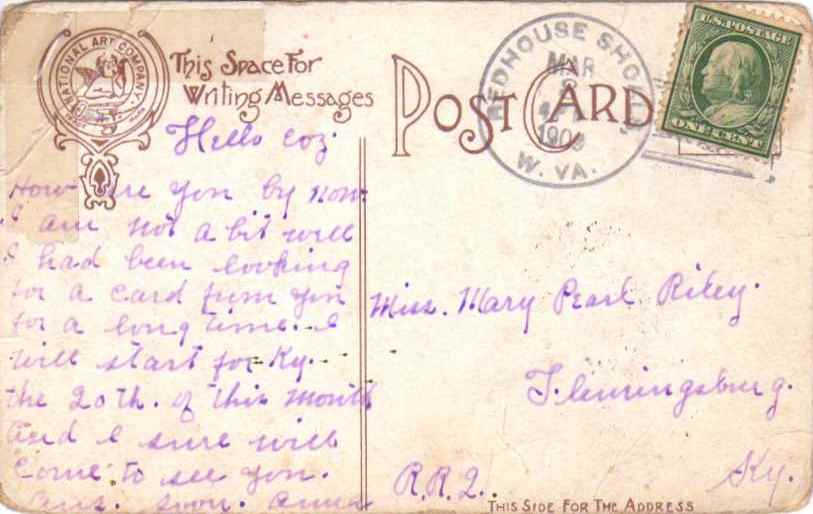 NATIONAL ART COMPANY
This Space For
Writing Messages
POST CARD
REDHOUSE SHO
MAR
1909
W. VA.
U.S. POSTAGE
ONE CENT
Hello coz
How are you by now
I am not a bit well
I had been looking
for a card from you
for a long time. I
will start for Ky.
the 20th. of this month
And I sure will
Come to see you.
Ans. soon. Anna
Miss. Mary Pearl Riley.
Flemingsburg.
Ky.
R.R.2.
THIS SIDE FOR THE ADDRESS